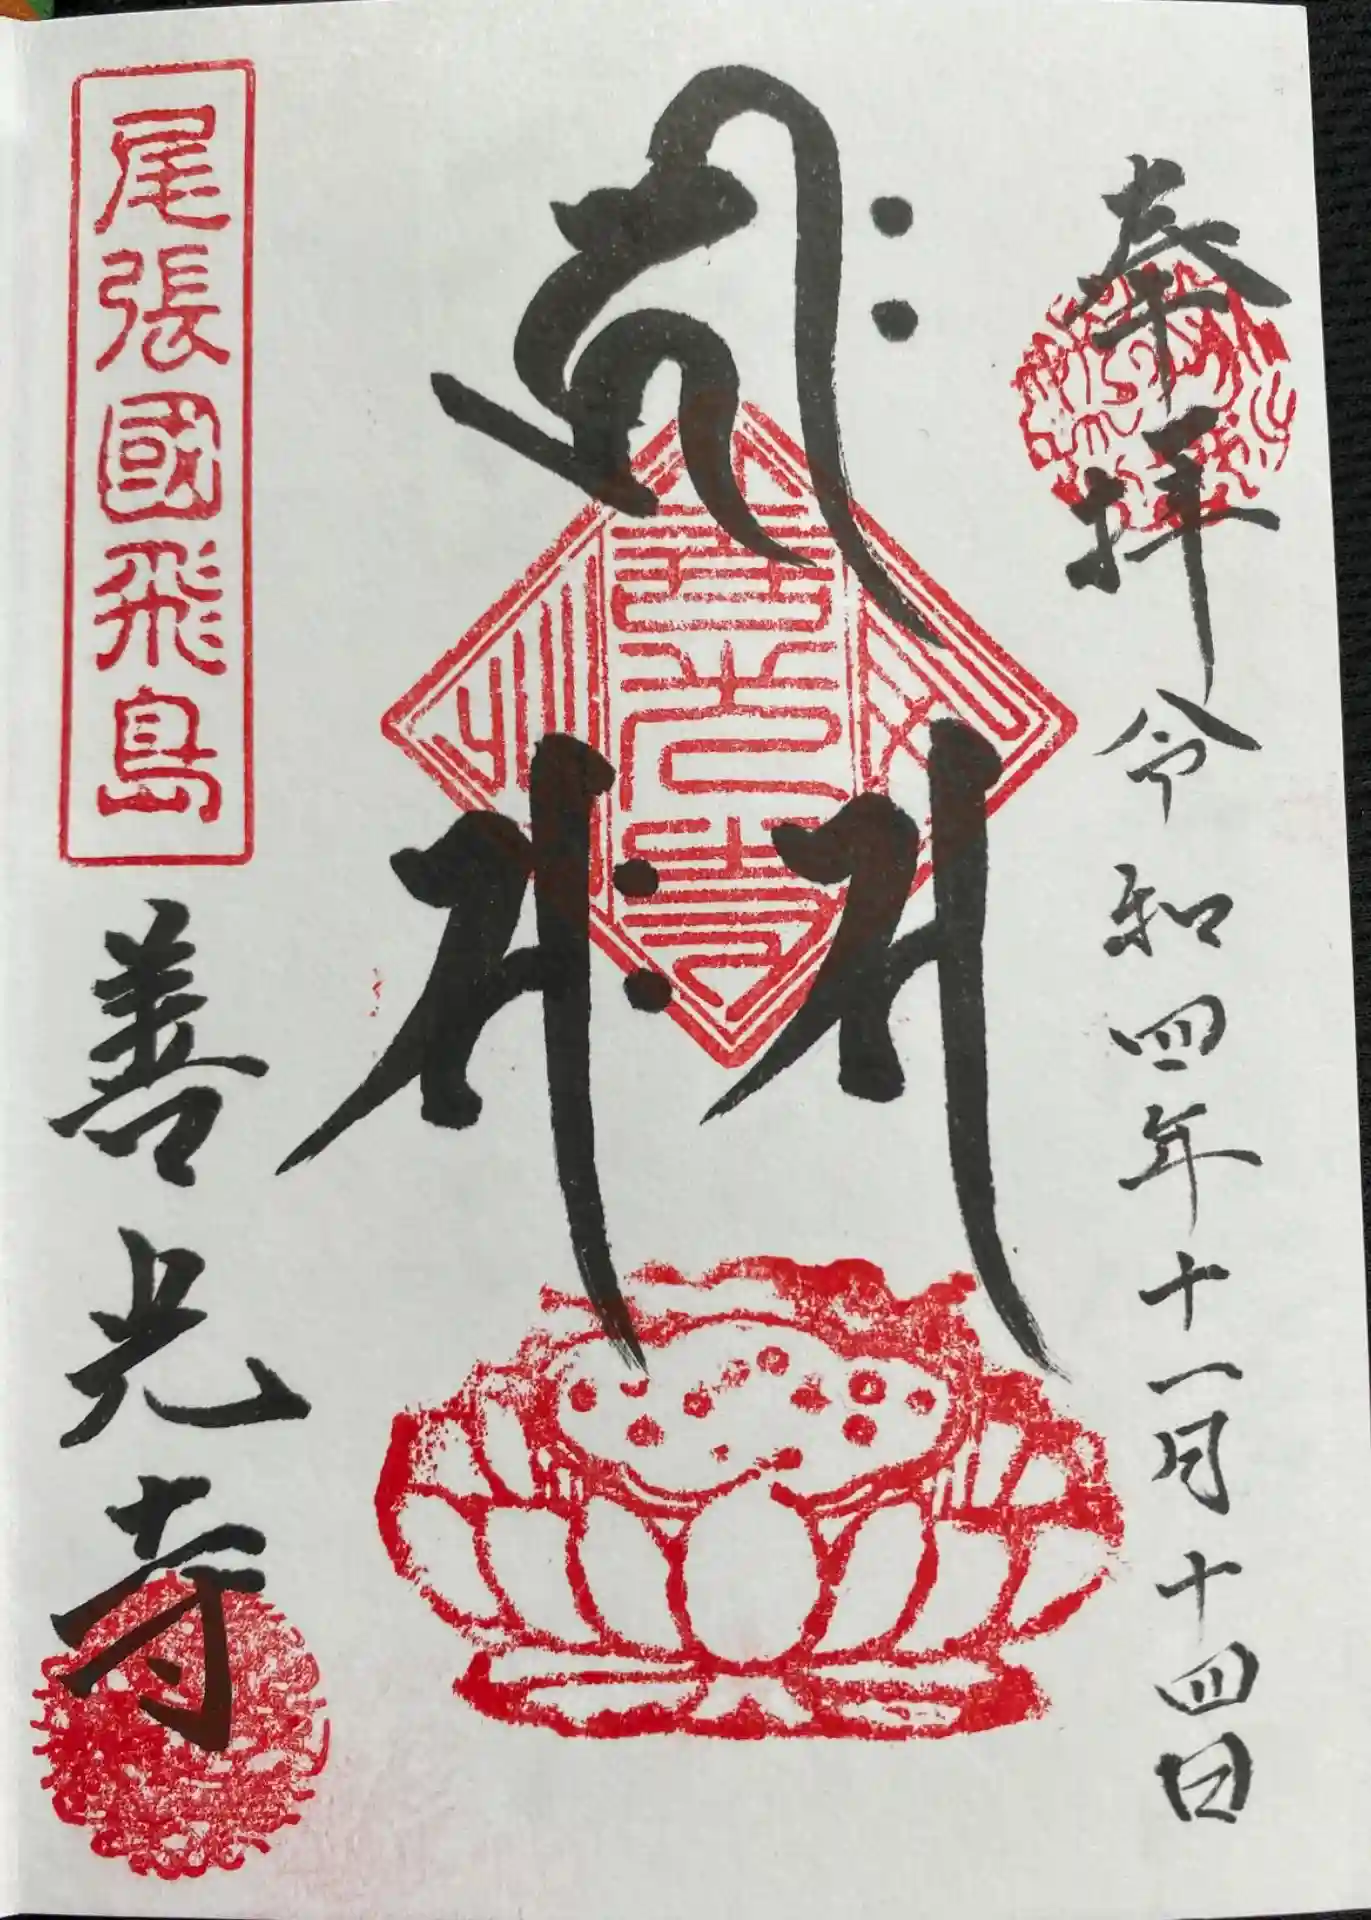 奉拝
令和四年十一月十四日
𑖮𑖿𑖨𑖱𑖾
𑖭
𑖭𑖾
善光寺
尾張國飛島
善光寺